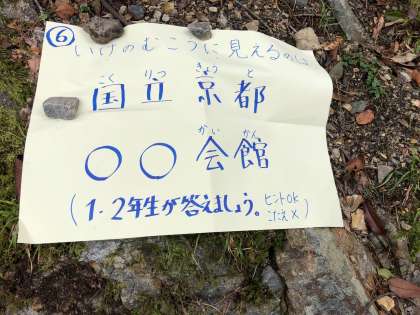 ⑥ いけのむこうに見えるのは
こく りつ きょう と
国立京都
かい かん
○○会館
(1・2年生が答えましょう。ヒントOK
こたえ×)